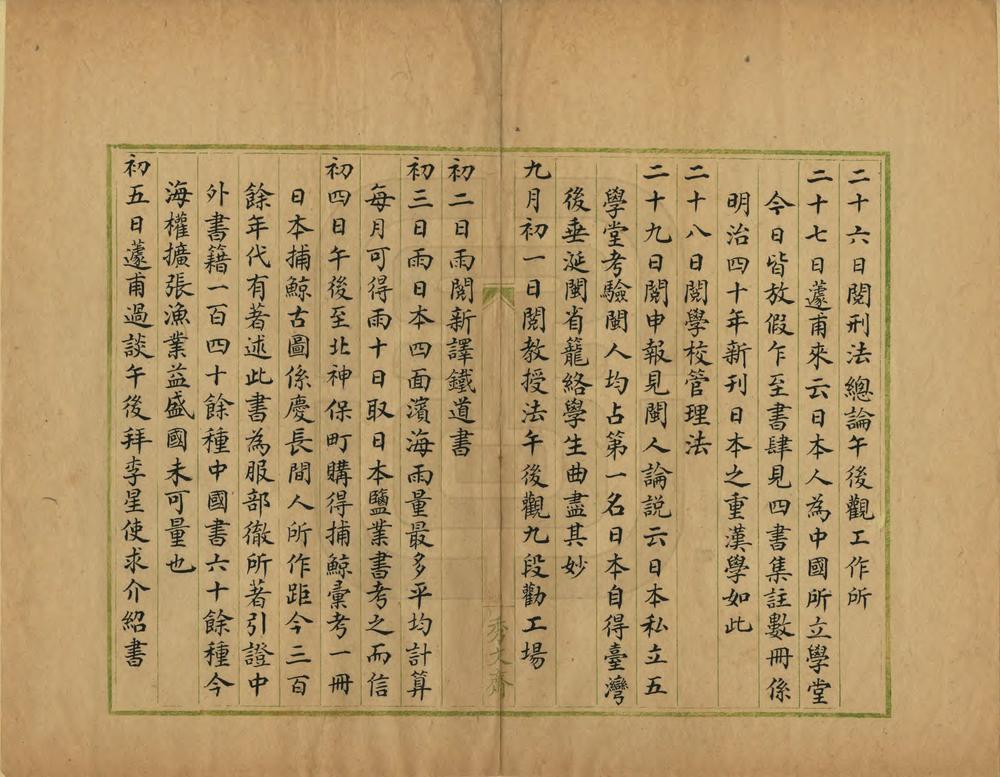 二十六日閱刑法總論午後觀工作所
二十七日蘧甫來云日本人為中國所立學堂
今日皆放假乍至書肆見四書集註數冊係
明治四十年新刊日本之重漢學如此
二十八日閱學校管理法
二十九日閱申報見閩人論說云日本私立五
學堂考驗閩人均占第一名日本自得臺灣
後垂涎閩省籠絡學生曲盡其妙
九月初一日閱教授法午後觀九段勸工場
初二日雨閱新譯鐵道書
初三日雨日本四面濱海雨量最多平均計算
每月可得雨十日取日本鹽業書考之而信
初四日午後至北神保町購得捕鯨彙考一冊
日本捕鯨古圖係慶長間人所作距今三百
餘年代有著述此書為服部徹所著引證中
外書籍一百四十餘種中國書六十餘種今
海權擴張漁業益盛國未可量也
初五日蘧甫過談午後拜李星使求介紹書
秀文齋